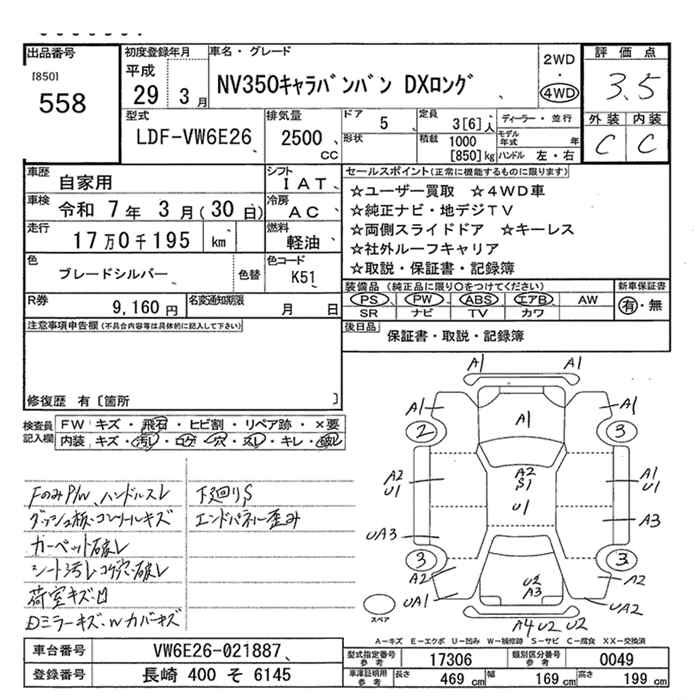 出品番号
[850]
558
初度登録年月
平成
29 3 月
車名・グレード
NV350キャラバンバン DXロング
2WD
・
4WD
評価点
3.5
外装 内装
C C
型式
LDF-VW6E26
排気量
2500
cc
ドア
5
形状
定員
3[6]人
積載
1000
[850]kg
ディーラー・並行
モデル年式 年
ハンドル 左・右
車歴
自家用
シフト
IAT
セールスポイント(正常に機能するものに限ります)
☆ユーザー買取 ☆4WD車
☆純正ナビ・地デジTV
☆両側スライドドア ☆キーレス
☆社外ルーフキャリア
☆取説・保証書・記録簿
車検
令和 7年 3月(30日)
冷房
AC
走行
17万0千195 km
燃料
軽油
色
ブレードシルバー
色替
色コード
K51
装備品(純正品に限り○をつけてください)
PS PW ABS エアB AW
SR ナビ TV カワ
新車保証書
有・無
R券
9,160円
名変通知期限
月 日
後日品
保証書・取説・記録簿
注意事項申告欄(不具合内容等は具体的に記入して下さい)
修復歴 有〔箇所 〕
検査員
記入欄
FW キズ・飛石・ヒビ割・リペア跡・×要
内装 キズ・汚レ・コゲ・穴・スレ・キレ・破レ
FのみP/W、ハンドルスレ
下廻りS
ダッシュ板・コンソールキズ
エンドパネル歪み
カーペット破レ
シート汚レコゲ穴破レ
荷室キズ凹
DミラーキズWカバーキズ
A1
A1
A1
A1
A1
2
3
A2
U1
A2
S1
U1
A1
U1
UA3
A3
3
3
A2
A2
UA1
U2
A3
UA2
A4 U2 U2
スペア
A-キズ E-エクボ U-凹み W-補修跡 S-サビ C-腐食 XX-交換済
車台番号
VW6E26-021887
登録番号
長崎 400 そ 6145
型式指定番号
参考
17306
類別区分番号
参考
0049
車庫証明用
参考
長さ
469 cm
幅
169 cm
高さ
199 cm